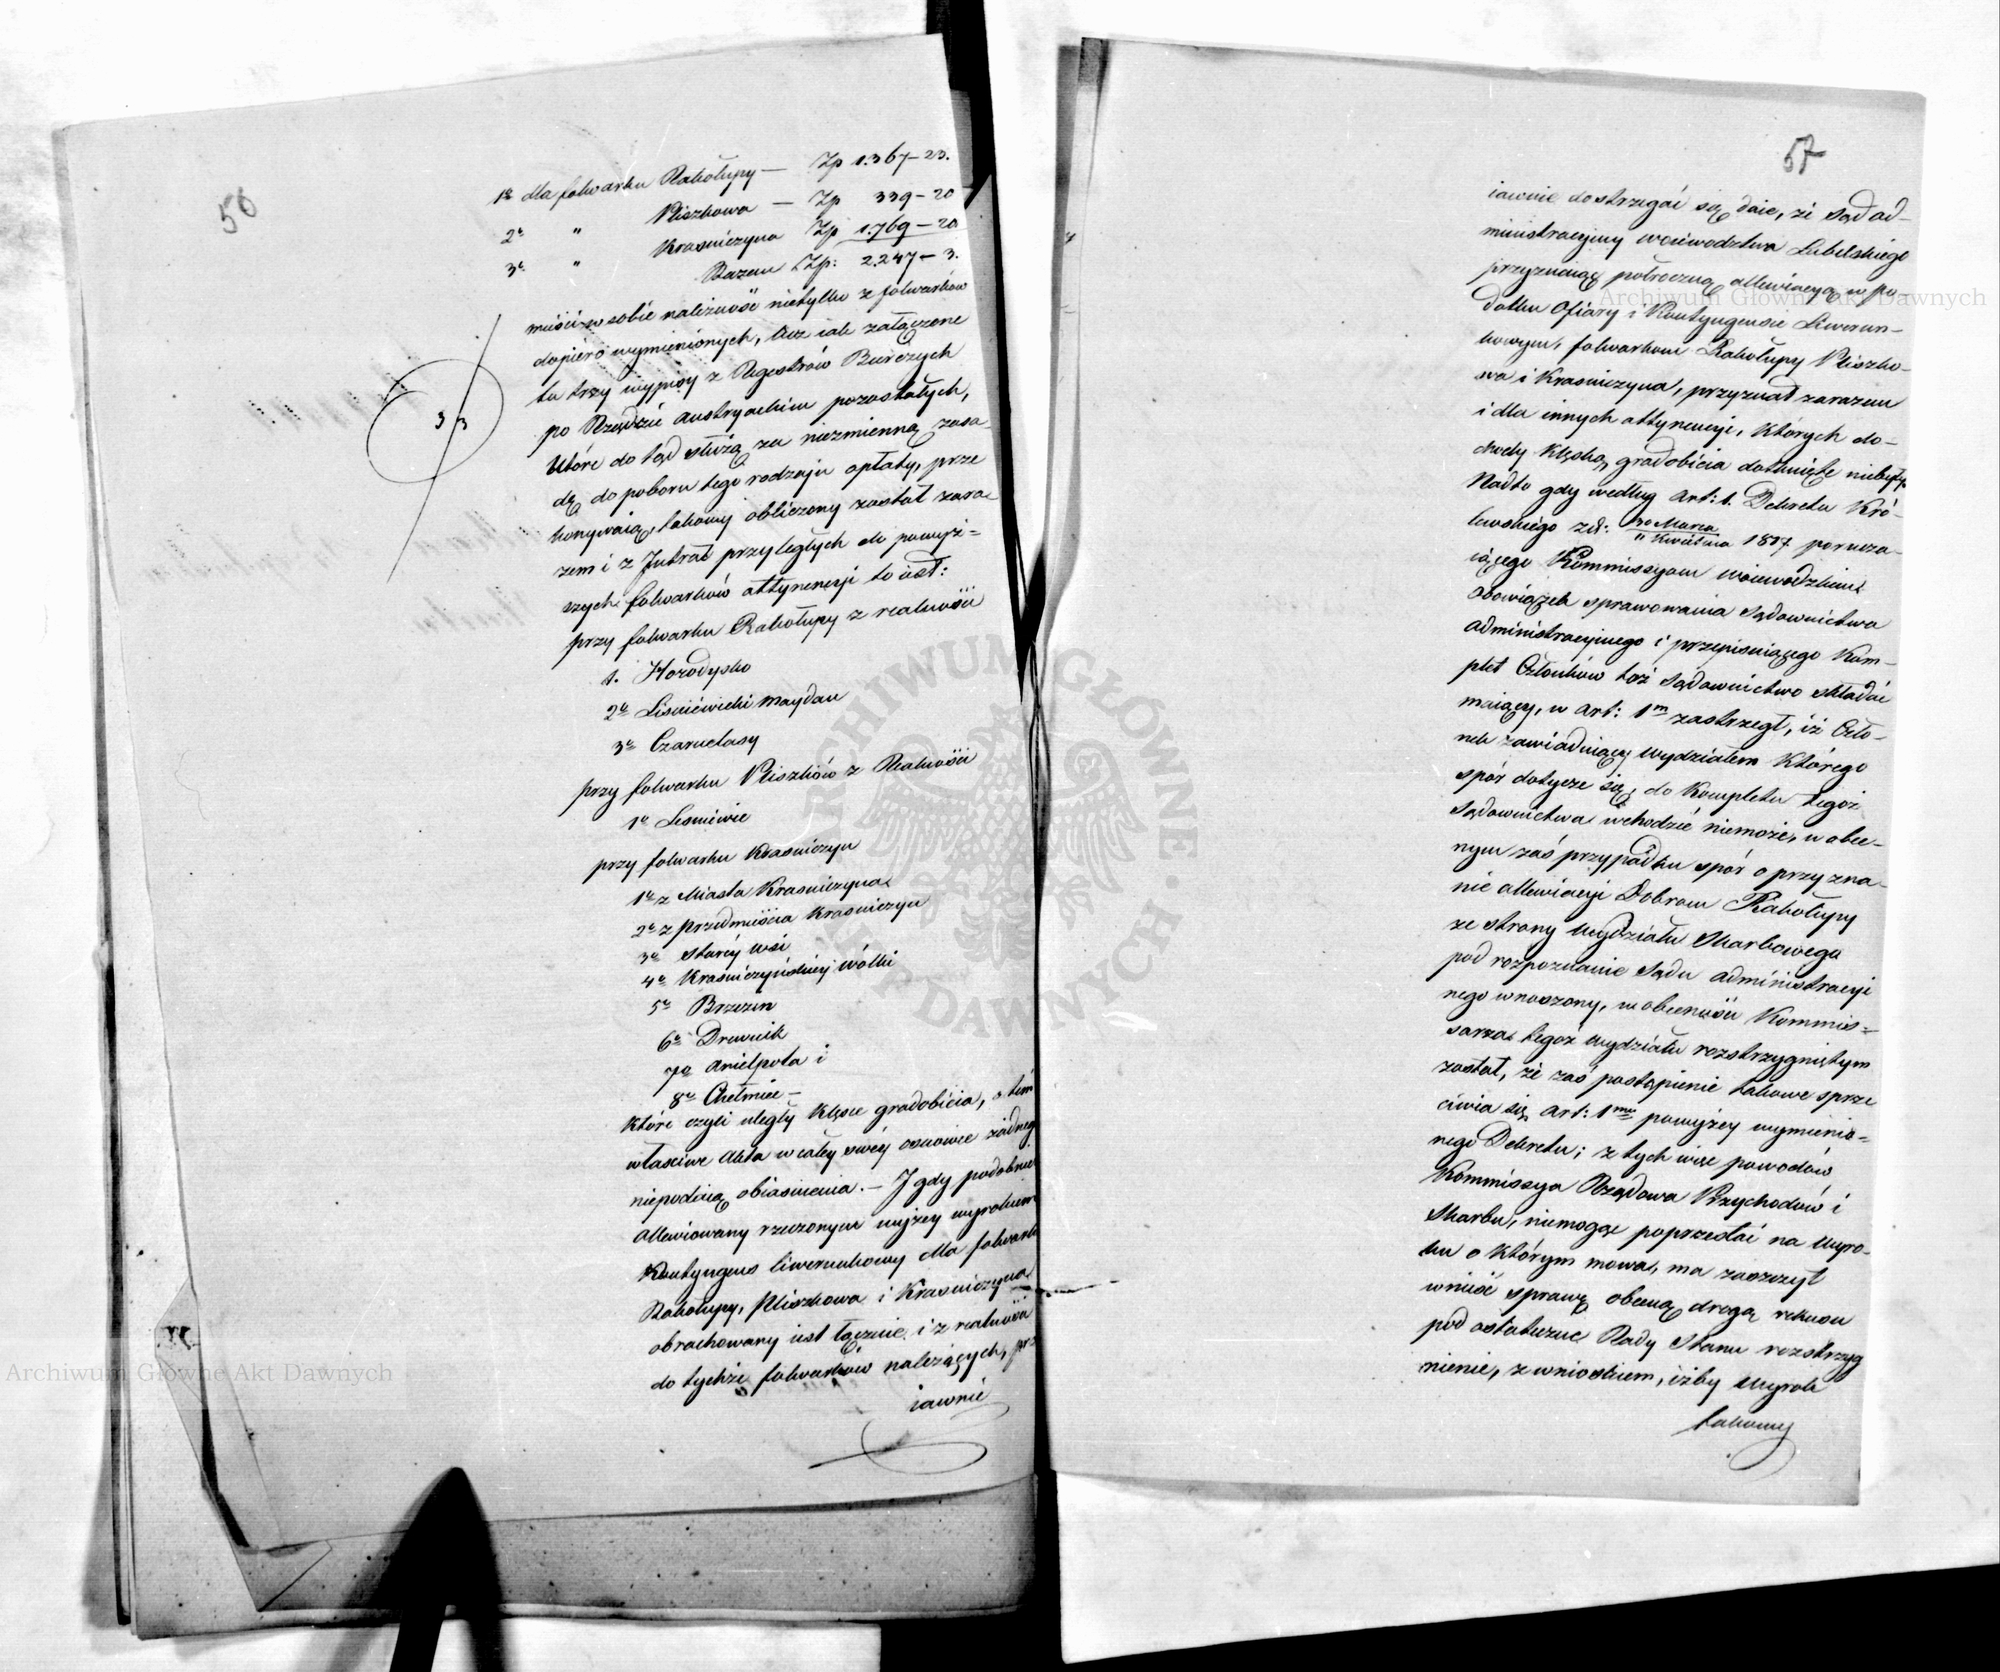 56
1º dla folwarku Rakołupy — Zp 1.367—23.
2º " Pliszkowa — Zp 339—20
3º " Krasniczyna Zp 1.769—20
Razem Zp: 2.247—3.
mieści w sobie należność nietylko z folwarków
dopiéro wymienionych, lecz iak załączone
tu trzy wypisy z Regestrów Bierczych
po Rządzie austryackim pozostałych,
które do tąd służą za niezmienną zasa-
dę do poboru tego rodzaju opłaty, prze
konywaią, takowy obliczony został zara
zem i z Intrat przyległych do powyż=
szych folwarków attynencyi to iest:
przy folwarku Rakołupy z realności
1. Horodysko
2º Liśniéwicki Maydan
3º Czarnolasy
przy folwarku Pliszków z Realności
1º Lesniéwie
przy folwarku Krasniczyn
1º z Miasta Krasniczyna
2º z przedmieścia Krasniczyn
3º Starey wsi
4º Krasniczyńskiéy wólki
5º Brzezin
6º Drewnik
7º Anielpola i
8º Chełmiec —
które czyli uległy klęsce gradobicia, o tém
właściwe Akta w całey swéy osnowie żadneg
niepodaią obiasnienia. — I gdy podobnie
allewiowany rzeczonym wyżey wyrokiem
Kontyngens liwerunkowy dla folwark
Rakołupy, Pliszkowa i Krasniczyna
obrachowany iest łącznie i z realności
do tychże folwarków należących,
iawnié
33
57
iawnie dostrzegać się daie, że Sąd ad-
ministracyiny woiewodztwa Lubelskiego
przyznaiąc półroczną allewiacyą w po-
datku Ofiary i Kontyngensie Liwerun-
kowym, folwarkom Rakołupy Pliszko-
wa i Krasniczyna, przyznał zarazem
i dla innych attynencyi, których do-
chody klęską gradobicia dotknięte niebyły.
Nadto gdy według art: 1. Dekretu Kró-
lewskiego zd: 30 Marca / 11 Kwietnia 1817 porucza-
iącego Kommissyom woiewodzkim
obowiązek sprawowania Sądownictwa
administracyinego i przepisuiącego Kom-
plet Członków toż Sądownictwo składać
maiący, w art: 1m zastrzegł, iż Czło-
nek zawiaduiący wydziałem którego
spór dotycze się, do Kompletu tegoż
Sądownictwa wchodzić niemoże, w obec-
nym zaś przypadku spór o przyzna-
nie allewiacyi Dobrom Rakołupy
ze strony wydziału Skarbowego
pod rozpoznanie Sądu administracyi
nego wnoszony, w obecności Kommis=
sarza tegoż wydziału rozstrzygniętym
został, że zaś postąpienie takowe sprze
ciwia się art: 1mu powyżey wymienio=
nego Dekretu; z tych więc powodów
Kommissya Rządowa Przychodów i
Skarbu, niemogąc poprzestać na wyro-
ku o którym mowa, ma zaszczyt
wnieść sprawę obecną drogą rekursu
pod ostateczne Rady Stanu rozstrzyg
nienie, z wnioskiem, iżby wyrok
takowy
Archiwum Główne Akt Dawnych
Archiwum Główne Akt Dawnych
ARCHIWUM GŁÓWNE AKT DAWNYCH